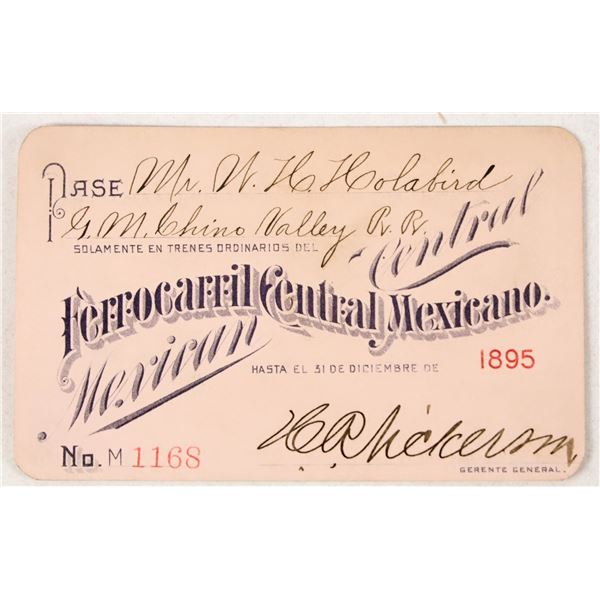 PASE Mr. W. H. Holabird
G. M. Chino Valley R. R.
SOLAMENTE EN TRENES ORDINARIOS DEL
Central
Ferrocarril Central Mexicano.
Mexican
HASTA EL 31 DE DICIEMBRE DE 1895
No. M 1168
H R Nickerson
GERENTE GENERAL.